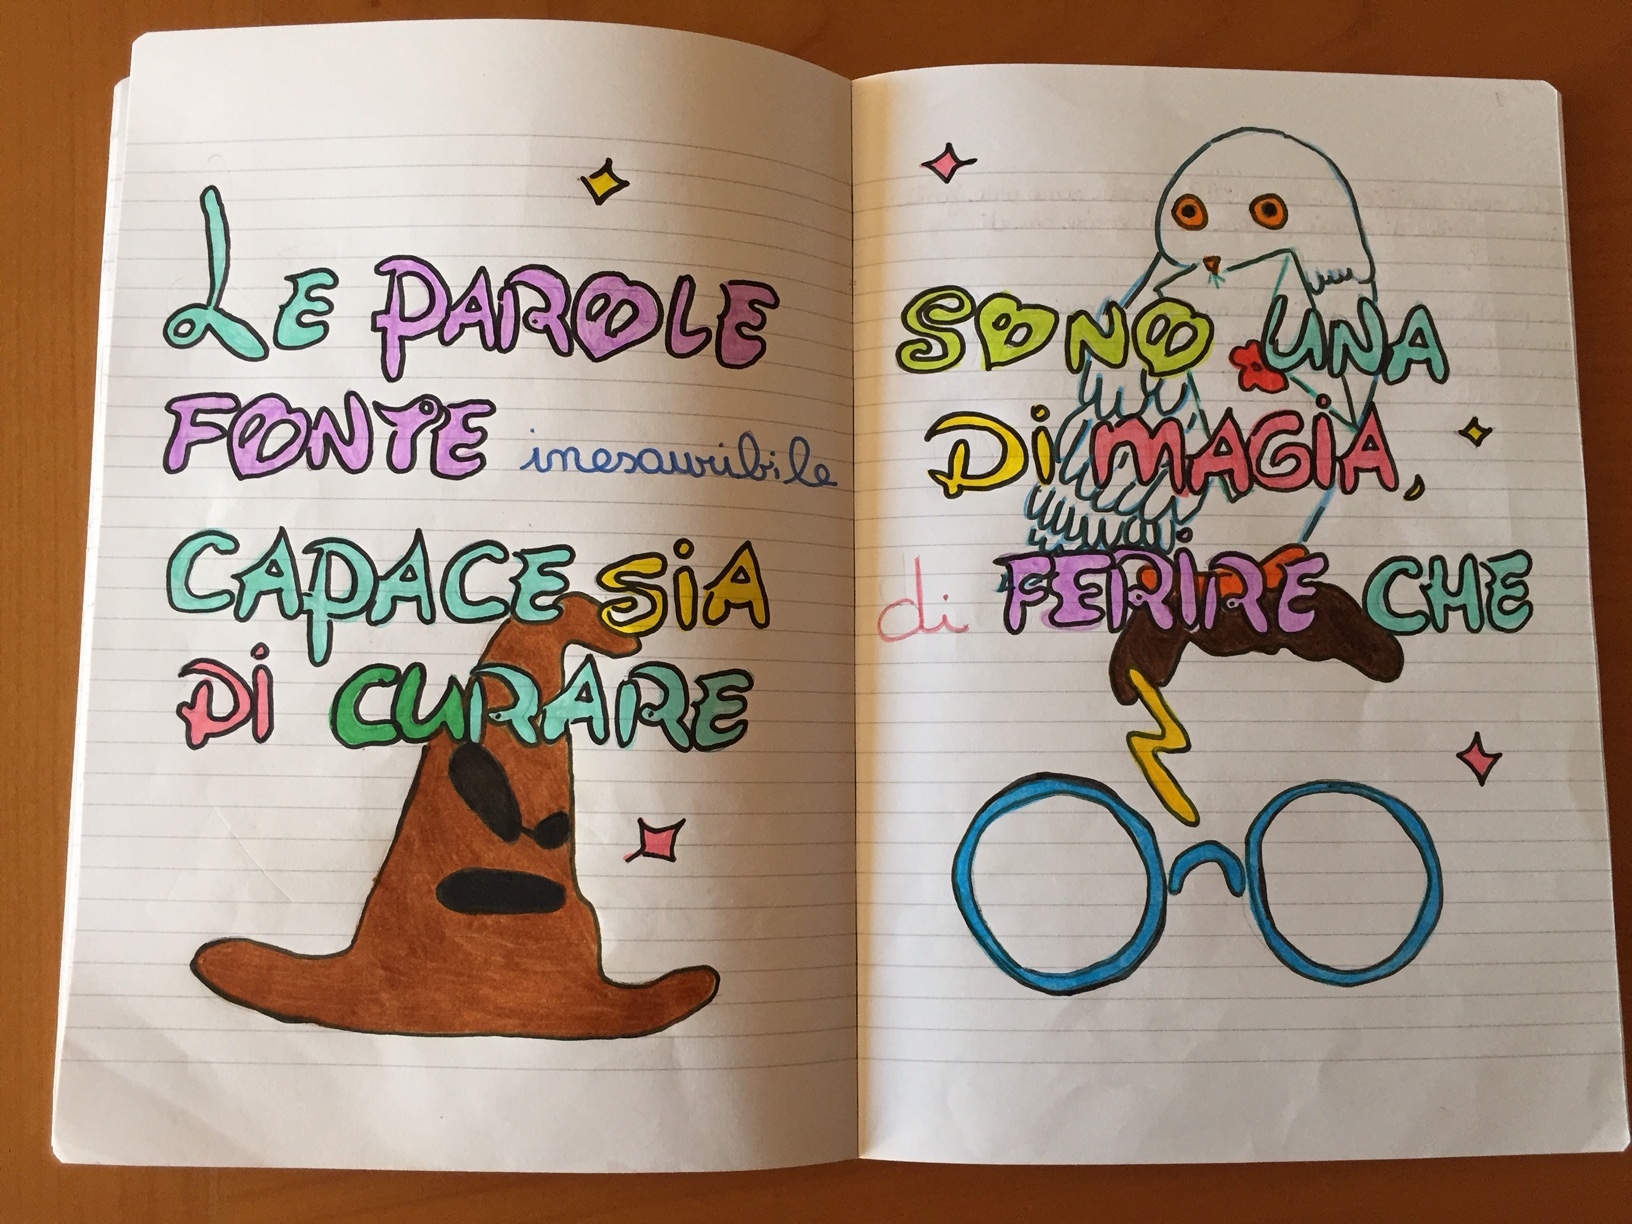 LE PAROLE SONO UNA
FONTE inesauribile Di MAGiA,
CAPACE SiA di FERiRE CHE
Di CURARE